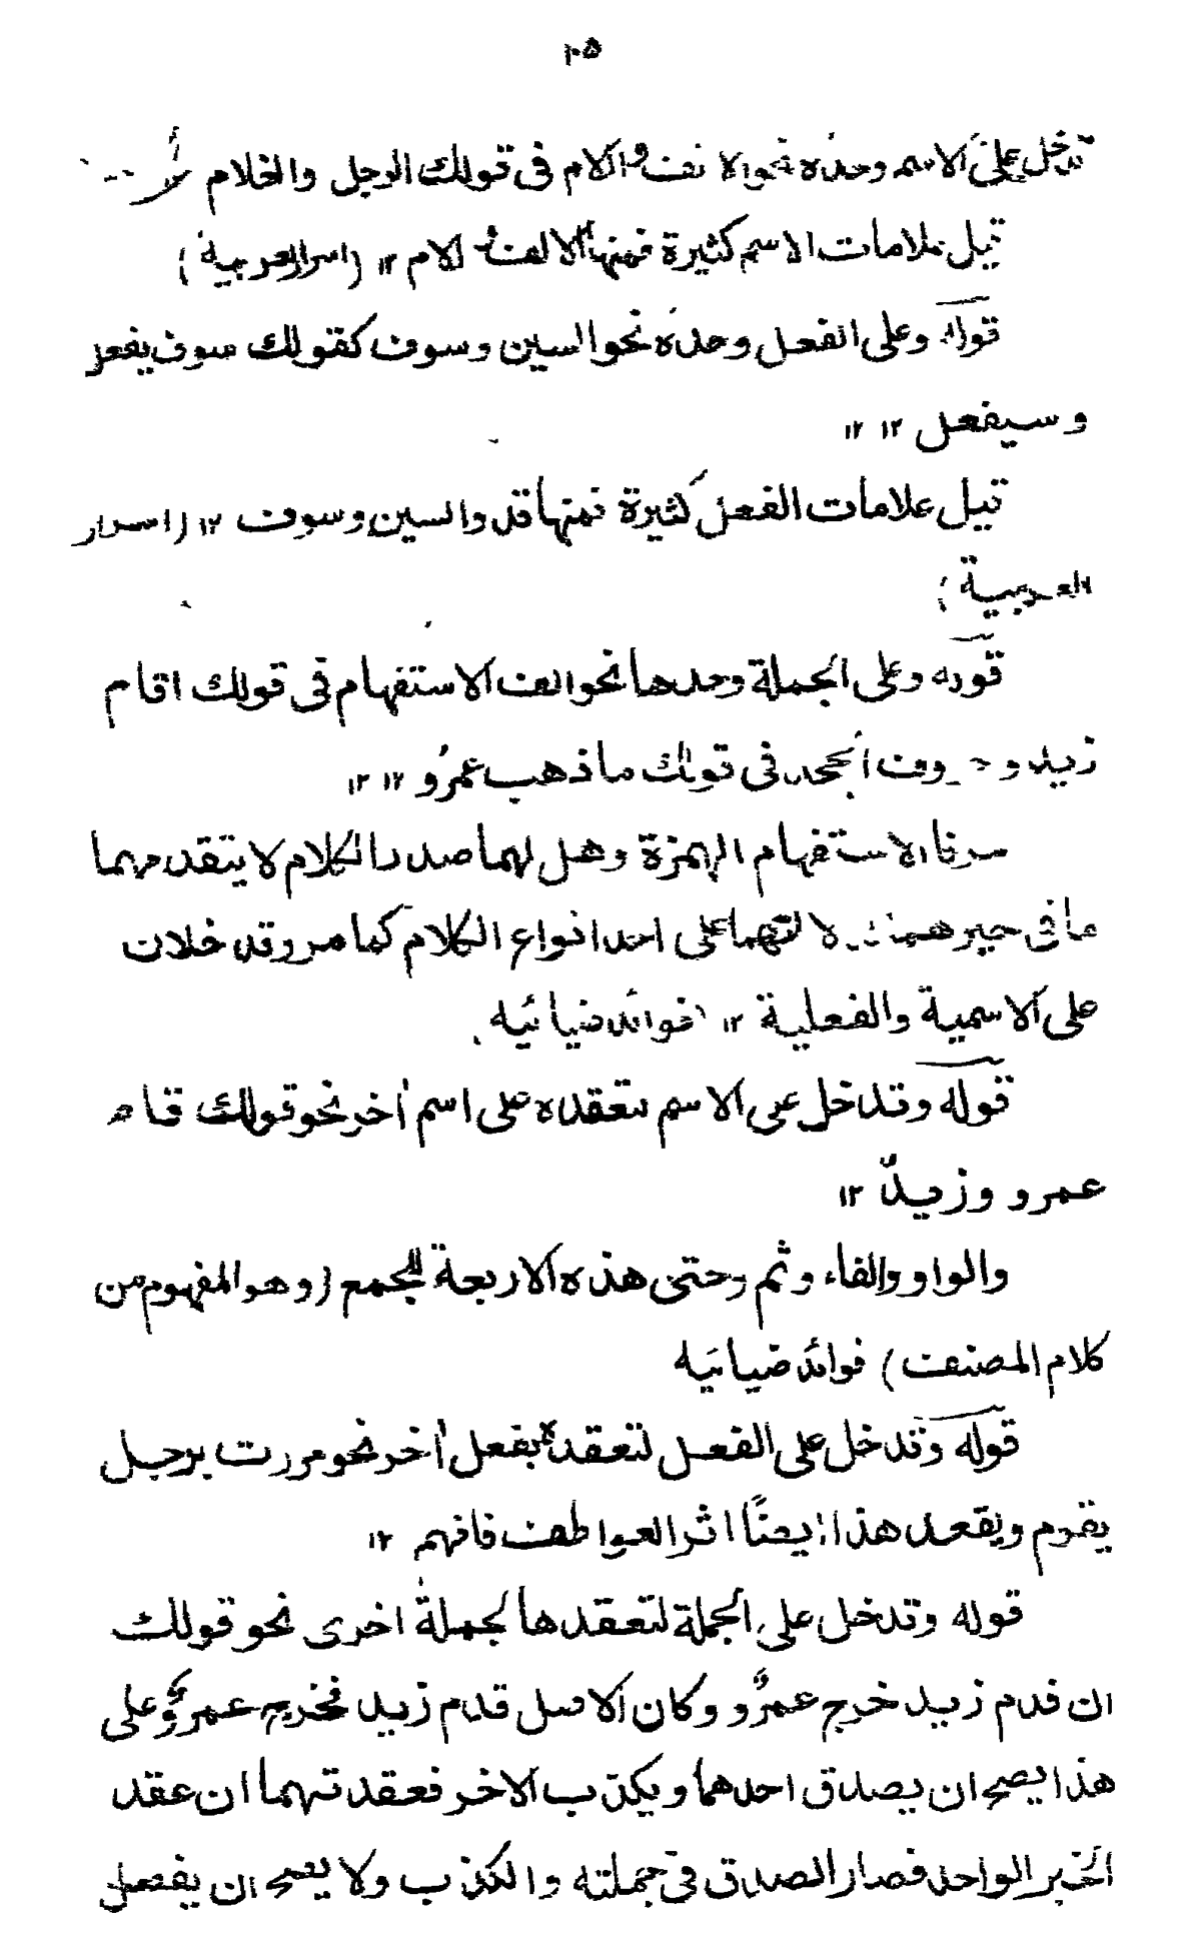 ٢٥
تدخل على الاسم وحده نحو الالف والام فى قولك الرجل والغلام
قيل علامات الاسم كثيرة فمنها الالف لام ١٢ (اسرار العربية)
قوله وعلى الفعل وحده نحو السين وسوف كقولك سوف يفعل
وسيفعل ١٢ ١٢
قيل علامات الفعل كثيرة فمنها قد والسين وسوف ١٢ (اسرار
العربية)
قوله وعلى الجملة وحدها نحو الف الاستفهام فى قولك اقام
زيد و الجحد فى قولك ما ذهب عمرُو ١٢ ١٢
حرفا الاستفهام الهمزة وهل لهما صدر الكلام لا يتقدمهما
ما فى حيزهما لدلالتهما على احد انواع الكلام كما مر وتدخلان
على الاسمية والفعلية ١٢ فوائد ضيائيه
قوله وتدخل على الاسم لتعقده على اسم اٰخر نحو قولك قام
عمرو وزيدٌ ١٢
والواو والفاء وثم وحتى هذه الاربعة للجمع (وهو المفهوم من
كلام المصنف) فوائد ضيائيه
قوله وتدخل على الفعل لتعقده بفعل اٰخر نحو مررت برجل
يقوم ويقعد هذا ايضًا اثر العواطف فافهم ١٢
قوله وتدخل على الجملة لتعقدها لجملة اخرى نحو قولك
ان قدم زيد خرج عمرٌو وكان الاصل قدم زيد فخرج عمرٌو على
هذا يصح ان يصدق احدهما ويكذب الاخر فعقدتهما ان عقد
الخبر الواحد فصار الصدق فى جملته والكذب ولا يصح ان يفصل